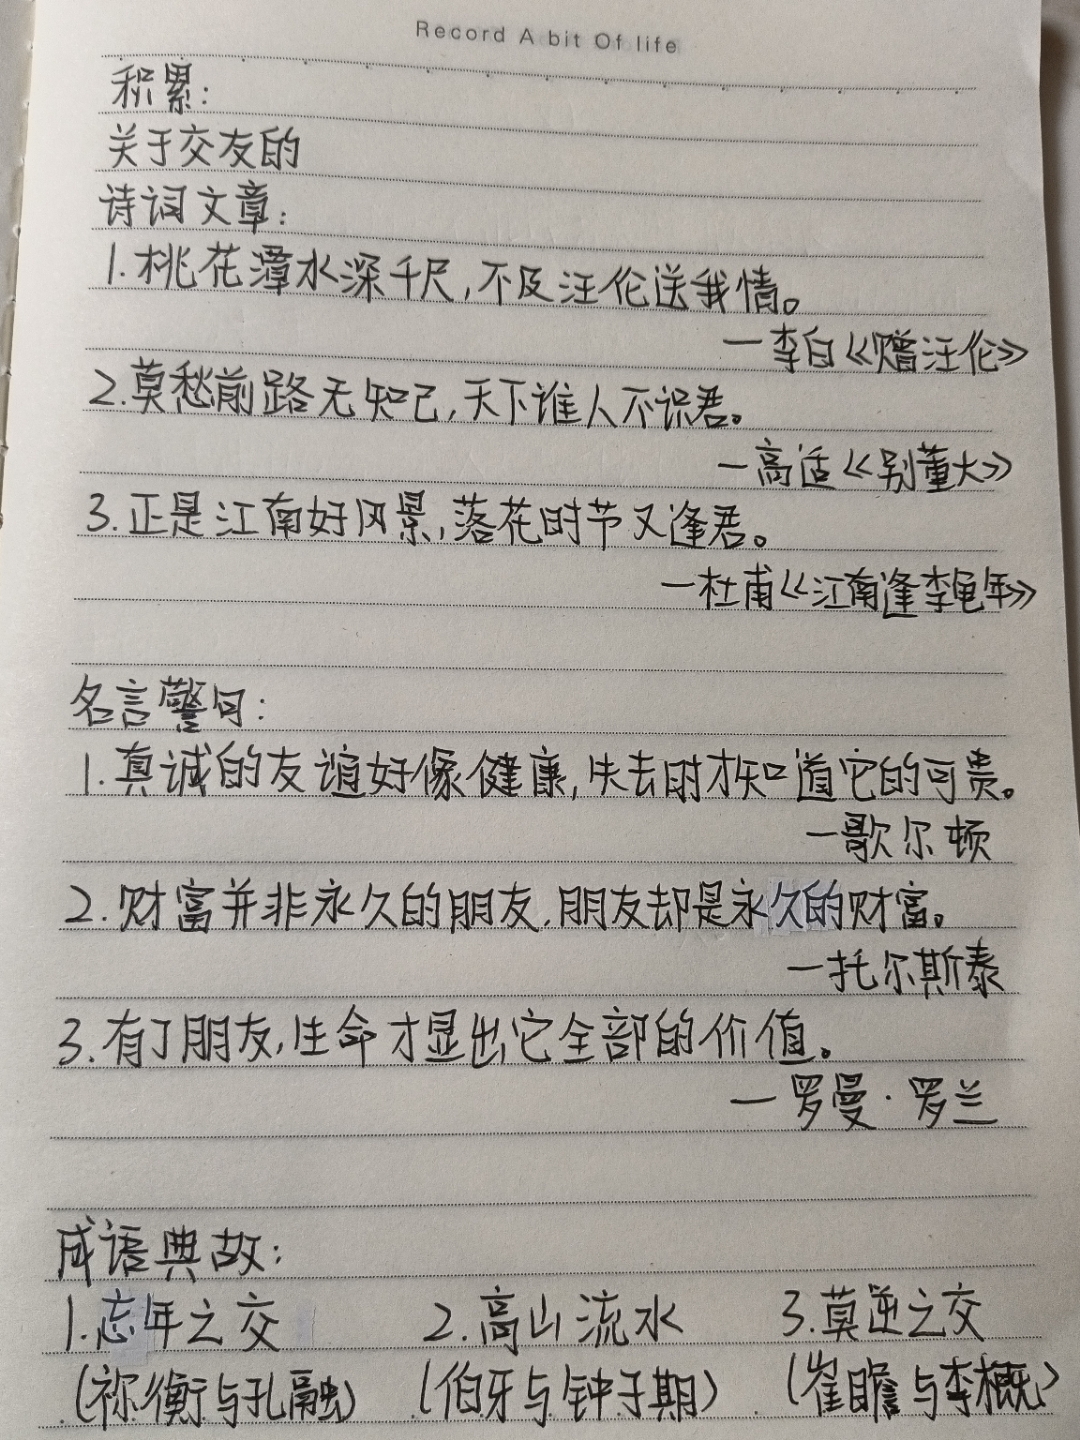 Record A bit Of life
积累:
关于交友的
诗词文章:
1.桃花潭水深千尺,不及汪伦送我情。
—李白《赠汪伦》
2.莫愁前路无知己,天下谁人不识君。
—高适《别董大》
3.正是江南好风景,落花时节又逢君。
—杜甫《江南逢李龟年》
名言警句:
1.真诚的友谊好像健康,失去时才知道它的可贵。
—歌尔顿
2.财富并非永久的朋友,朋友却是永久的财富。
—托尔斯泰
3.有了朋友,生命才显出它全部的价值。
—罗曼·罗兰
成语典故:
1.忘年之交 2.高山流水 3.莫逆之交
(祢衡与孔融) (伯牙与钟子期) (崔瞻与李概)